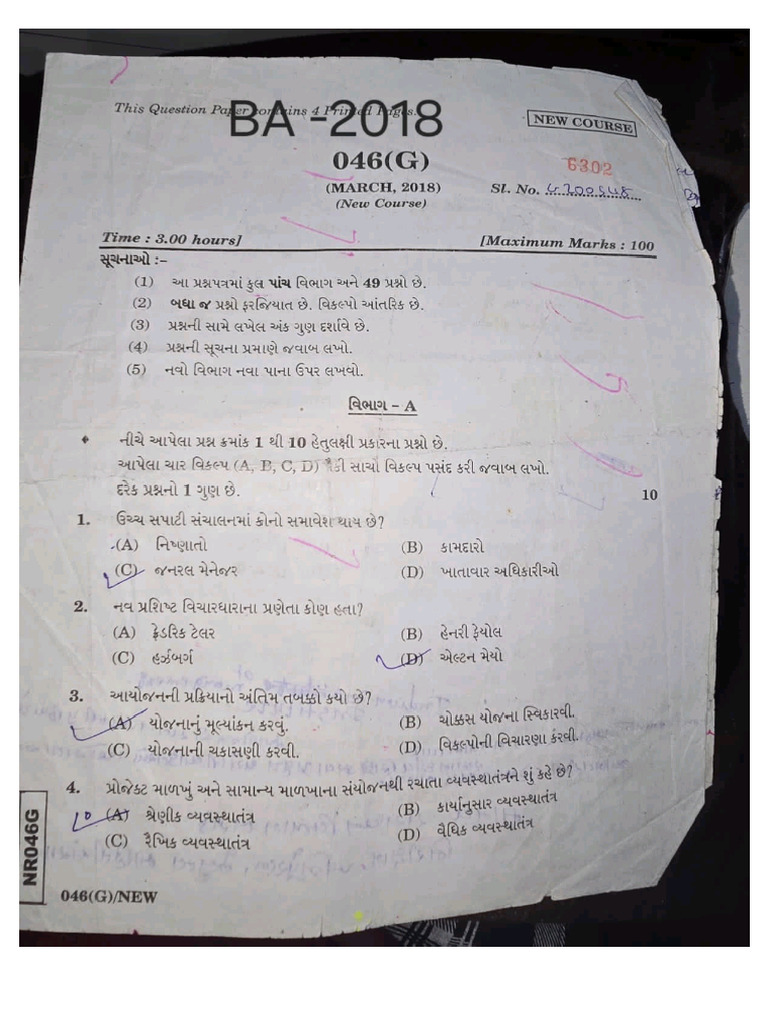 This Question Paper contains 4 Printed Pages.
BA -2018
NEW COURSE
046(G)
6302
(MARCH, 2018)
Sl. No.
(New Course)
Time : 3.00 hours]
[Maximum Marks : 100
સૂચનાઓ :–
(1) આ પ્રશ્નપત્રમાં કુલ પાંચ વિભાગ અને 49 પ્રશ્નો છે.
(2) બધા જ પ્રશ્નો ફરજિયાત છે. વિકલ્પો આંતરિક છે.
(3) પ્રશ્નની સામે લખેલ અંક ગુણ દર્શાવે છે.
(4) પ્રશ્નની સૂચના પ્રમાણે જવાબ લખો.
(5) નવો વિભાગ નવા પાના ઉપર લખવો.
વિભાગ – A
નીચે આપેલા પ્રશ્ન ક્રમાંક 1 થી 10 હેતુલક્ષી પ્રકારના પ્રશ્નો છે.
આપેલા ચાર વિકલ્પ (A, B, C, D) પૈકી સાચો વિકલ્પ પસંદ કરી જવાબ લખો.
દરેક પ્રશ્નનો 1 ગુણ છે. 10
1. ઉચ્ચ સપાટી સંચાલનમાં કોનો સમાવેશ થાય છે?
(A) નિષ્ણાતો (B) કામદારો
(C) જનરલ મેનેજર (D) ખાતાવાર અધિકારીઓ
2. નવ પ્રશિષ્ટ વિચારધારાના પ્રણેતા કોણ હતા?
(A) ફ્રેડરિક ટેલર (B) હેનરી ફેયોલ
(C) હર્ઝબર્ગ (D) એલ્ટન મેયો
3. આયોજનની પ્રક્રિયાનો અંતિમ તબક્કો કયો છે?
(A) યોજનાનું મૂલ્યાંકન કરવું. (B) ચોક્કસ યોજના સ્વિકારવી.
(C) યોજનાની ચકાસણી કરવી. (D) વિકલ્પોની વિચારણા કરવી.
4. પ્રોજેક્ટ માળખું અને સામાન્ય માળખાના સંયોજનથી રચાતા વ્યવસ્થાતંત્રને શું કહે છે?
(A) શ્રેણીક વ્યવસ્થાતંત્ર (B) કાર્યાનુસાર વ્યવસ્થાતંત્ર
(C) રૈખિક વ્યવસ્થાતંત્ર (D) વૈધિક વ્યવસ્થાતંત્ર
NR046G
046(G)/NEW